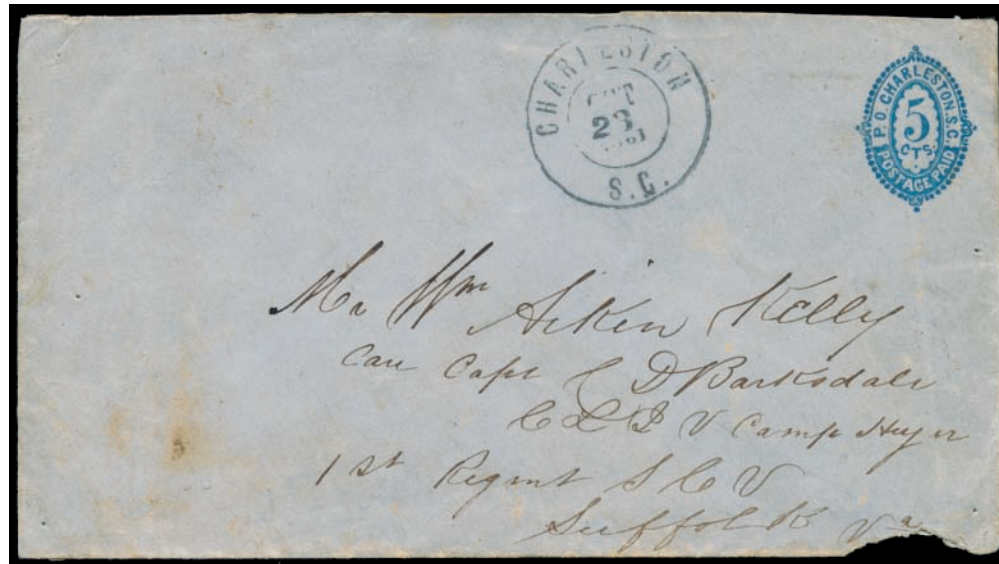 CHARLESTON
OCT
23
1861
S.C.
P.O. CHARLESTON. S.C.
5
CTS.
POSTAGE PAID
Mr Wm Aiken Kelly
Care Capt C D Barksdale
V Camp Huger
1st Regmnt S C V
Suffolk Va